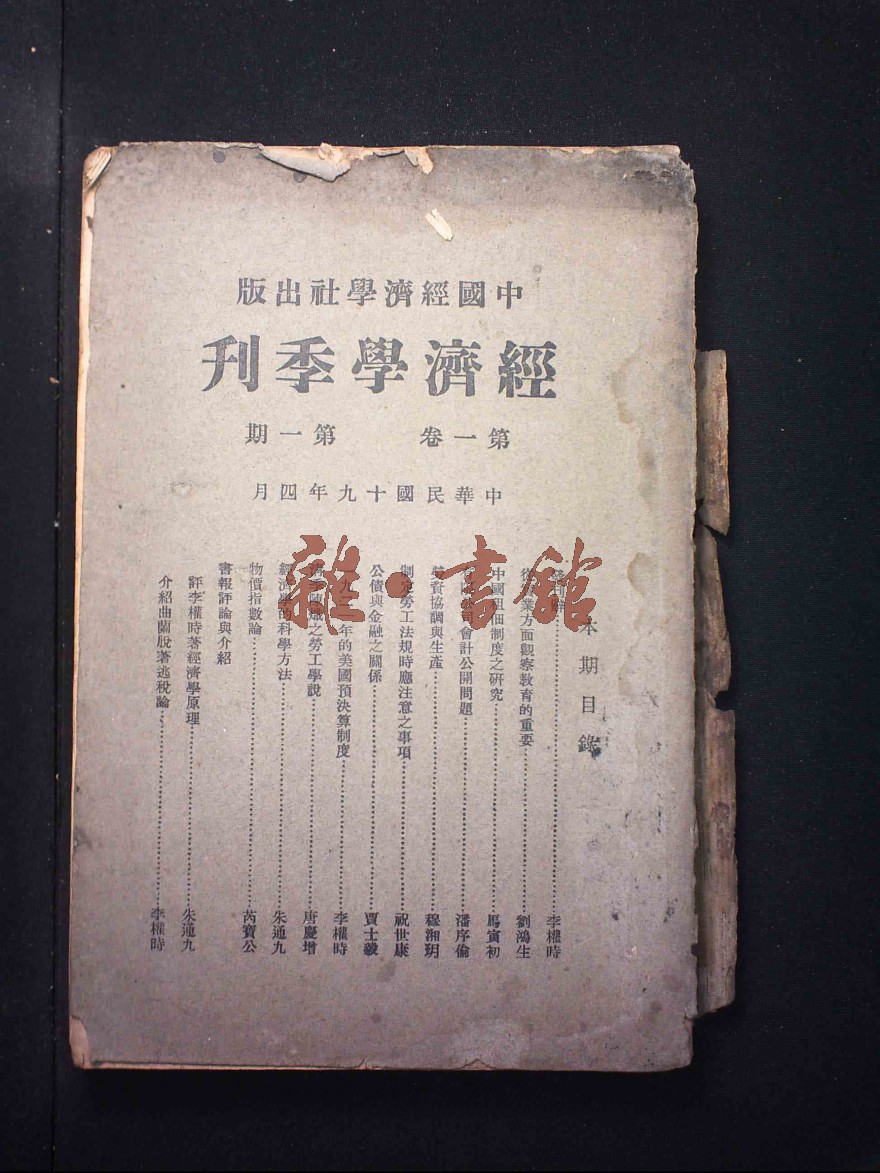 中國經濟學社出版
經濟學季刊
第一卷 第一期
中華民國十九年四月
雜·書館
本期目錄
李權時
從實業方面觀察教育的重要 劉鴻生
中國租佃制度之研究 馬寅初
會計公開問題 潘序倫
勞資協調與生產 穆湘玥
制定勞工法規時應注意之事項 祝世康
公債與金融之關係 賈士毅
年的美國預決算制度 李權時
之勞工學說 唐慶增
經濟學的科學方法 朱通九
物價指數論 芮寶公
書報評論與介紹
評李權時著經濟學原理 朱通九
介紹曲蘭脫著逃稅論 李權時